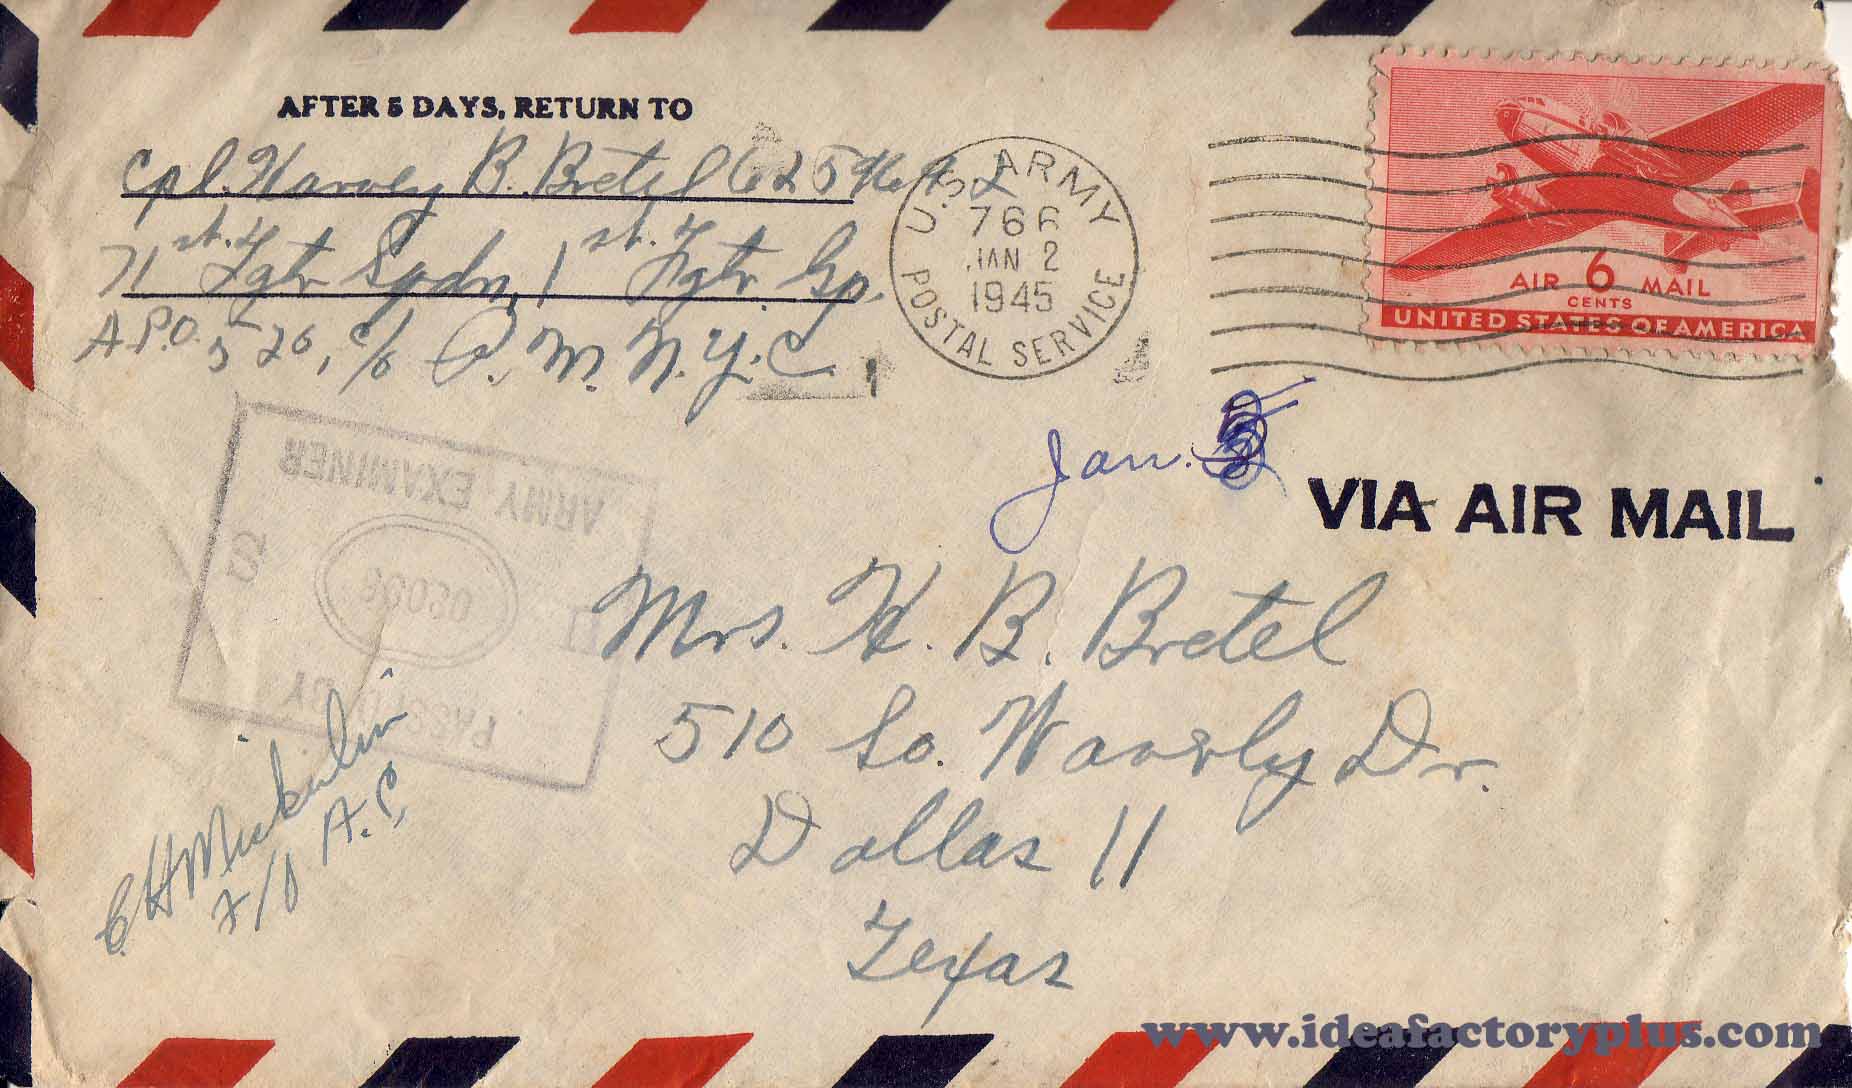 AFTER 5 DAYS, RETURN TO
Cpl. Harvey B. Bretel
71st Fgtr Sqdn, 1st Fgtr. Gp.
A.P.O. 520, c/o P.M. N.Y.C.
U.S. ARMY
766
JAN 2
1945
POSTAL SERVICE
AIR 6 MAIL
CENTS
UNITED STATES OF AMERICA
Jan.
VIA AIR MAIL
PASSED BY
ARMY EXAMINER
Mrs. H. B. Bretel
510 So. Waverly Dr.
Dallas 11
Texas
F/O A.C.
www.ideafactoryplus.com